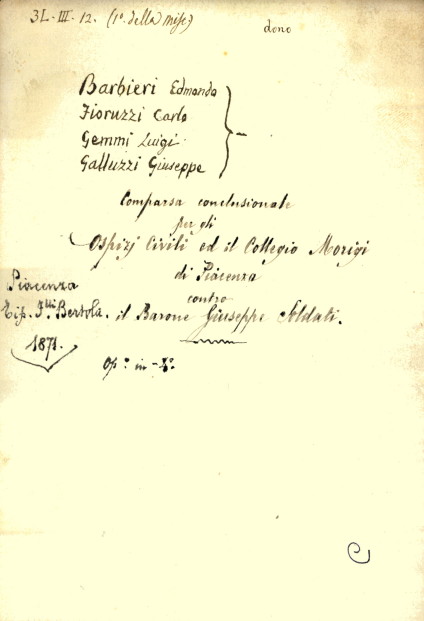 3L. III. 12. (1ª della misc)
dono
Barbieri Edmondo
Fioruzzi Carlo
Gemmi Luigi
Galluzzi Giuseppe
Comparsa conclusionale
per gli
Ospizj Civili ed il Collegio Morigi
di Piacenza
contro
il Barone Giuseppe Soldati.
Piacenza
Tip. F.lli Bertola.
1871.
in